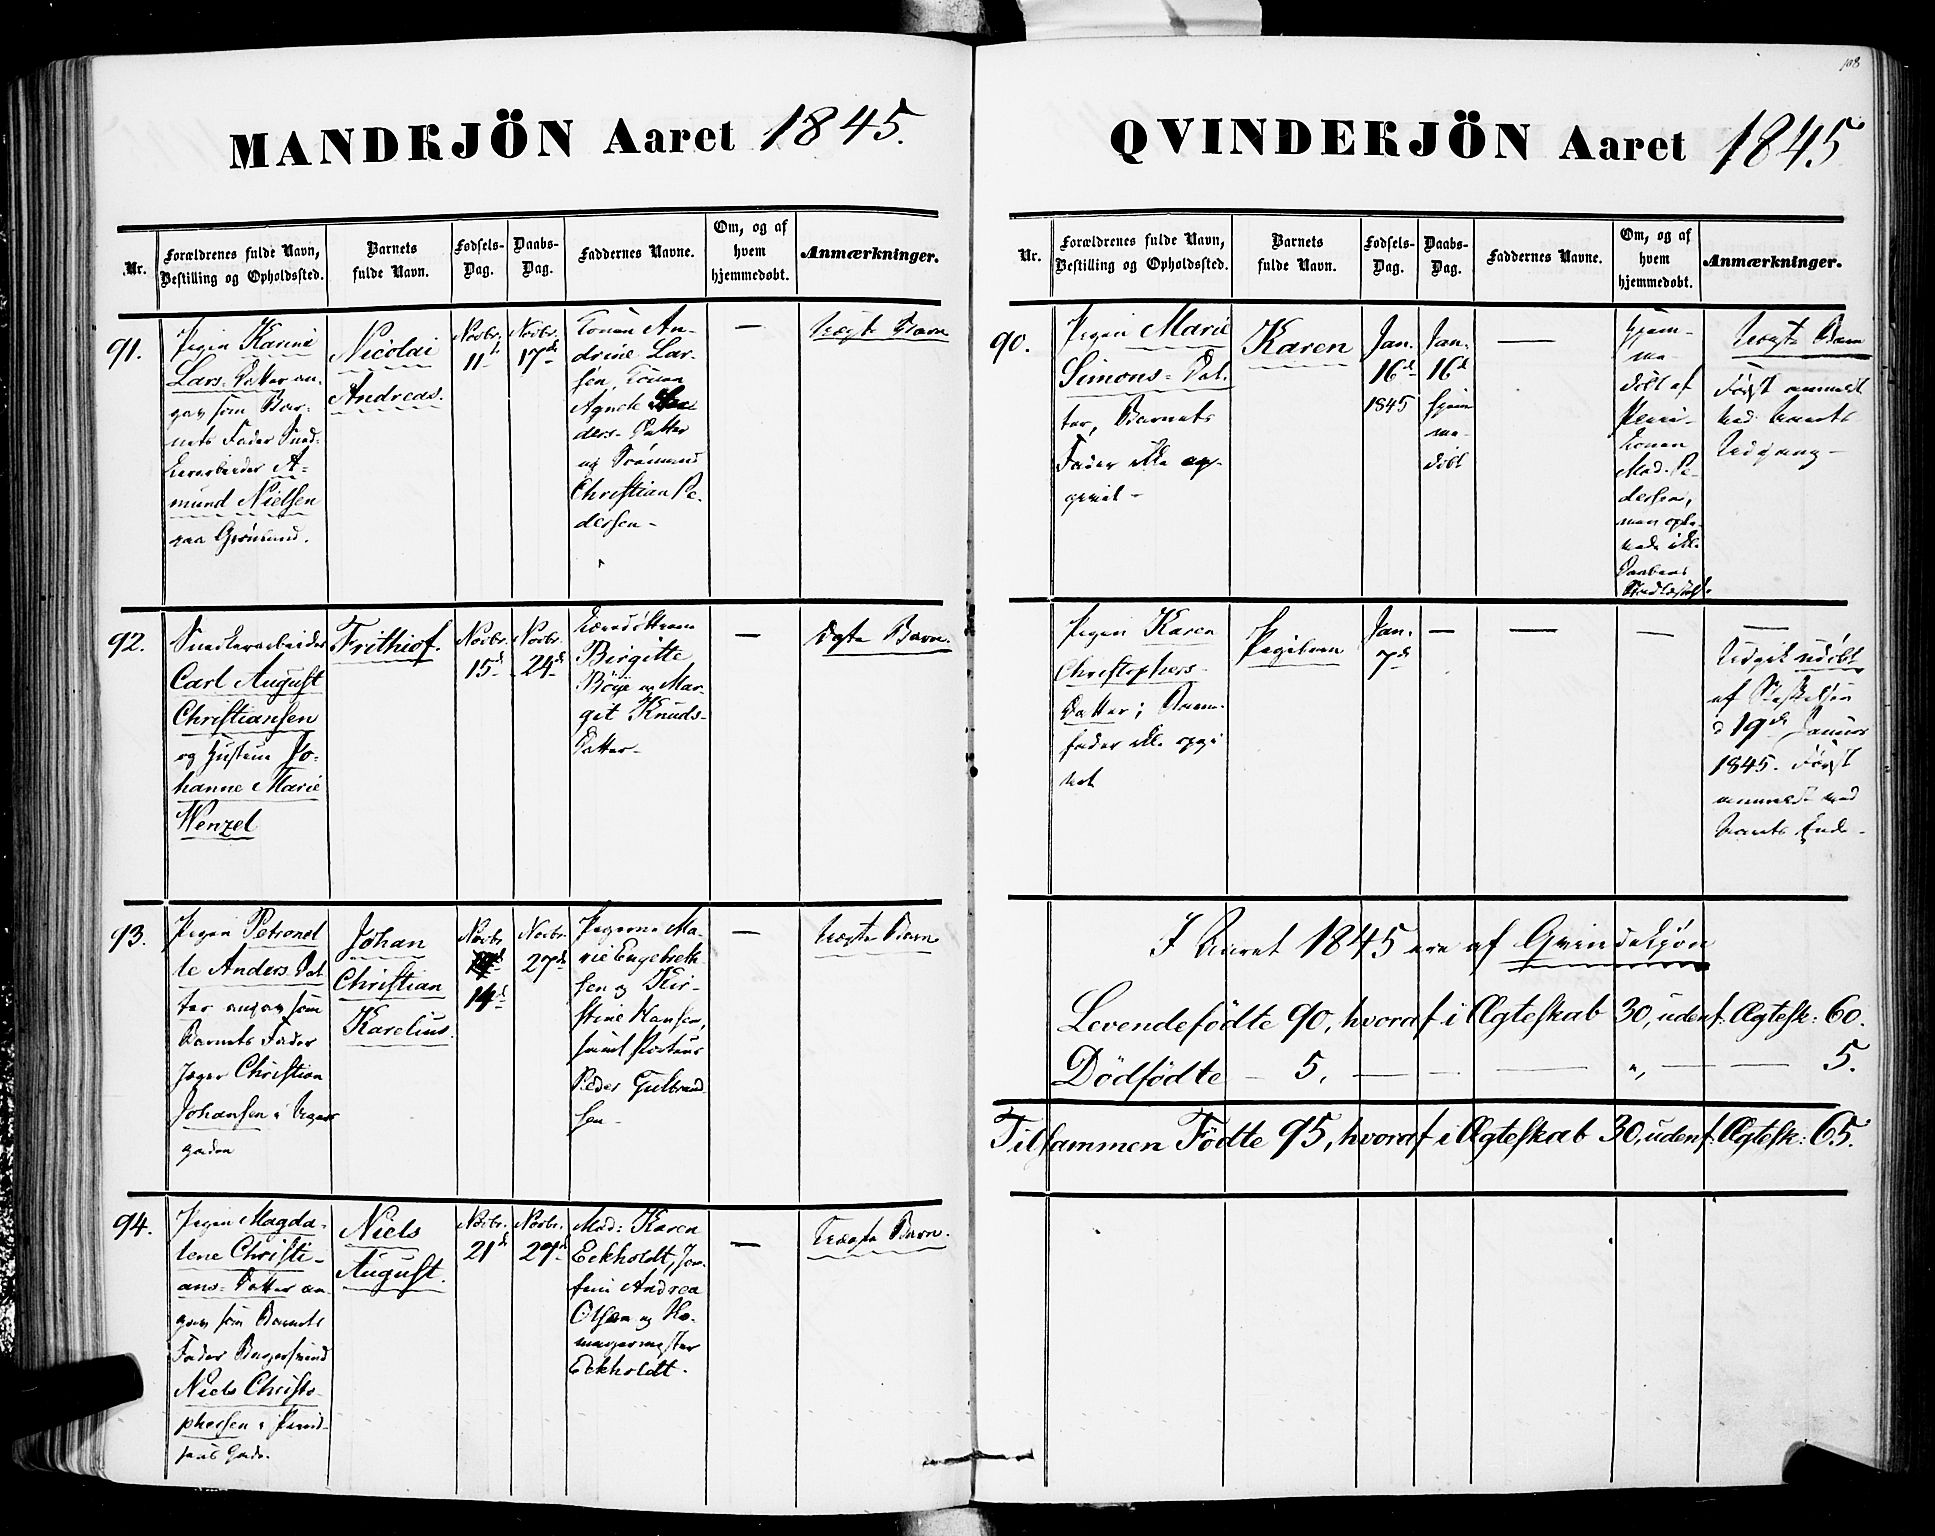 108
MANDKJÖN Aaret 1845.
Nr.
Forældrenes fulde Navn,
Bestilling og Opholdssted.
Barnets
fulde Navn.
Fødsels-
Dag.
Daabs-
Dag.
Faddernes Navne.
Om, og af
hvem
hjemmedøbt.
Anmærkninger.
91.
Pigen Karine
Lars-Datter an-
gav som Bar-
nets Fader Sned-
kerarbeider A-
mund Nielsen
paa Grønland.
Nicolai
Andreas.
Novbr.
11te
Novbr.
17de
Konen An-
drine Lar-
sen, Konen
Agnete
ders-Datter
og
Christian Pe-
dersen-
—
Uægte Barn
92.
Snedkerarbeider
Carl August
Christiansen
og Hustrue Jo-
hanne Marie
Wenzel
Frithiof.
Novbr.
15de
Novbr.
24de
Birgitte
Böye og Mar-
git Knuds-
Datter-
—
Ægte Barn.
93.
Pigen Petronel
le Anders-Dat
ter angav som
Barnets Fader
Jæger Christian
Johansen i
gaden
Johan
Christian
Karelius.
Novbr.
14de
Novbr.
27de
Pigerne Ma-
rie Engebreth-
sen og Kir-
stine Hansen,
samt
Peder Gulbrand
sen-
—
Uægte Barn
94.
Pigen Magda-
lene Christi-
ans-Datter an-
gav som Barnets
Fader
Niels Christo-
phersen i
Gade.
Niels
August.
Novbr.
21de
Novbr.
27de
Mad: Karen
Eckholdt, Jom-
fru Andrea
Olsen og
Eckholdt.
—
Uægte Barn.
QVINDEKJÖN Aaret 1845
Nr.
Forældrenes fulde Navn,
Bestilling og Opholdssted.
Barnets
fulde Navn.
Fødsels-
Dag.
Daabs-
Dag.
Faddernes Navne.
Om, og af
hvem
hjemmedøbt.
Anmærkninger.
90.
Pigen Marie
Simons-Dat-
ter, Barnets
Fader ikke op-
givet-
Karen
Jan.
16de
1845
Jan.
16de
hjem
me-
döbt
—
hjem-
me-
döbt af
konen
Mad. Pe-
dersen,
men
ikke
Daabens
Uægte Barn
Först anmeldt
ved Aarets
Udgang-
Pigen Karen
Christophers-
Datter; Barne-
fader ikke opgi
vet
Pigebarn
Jan.
7de
—
—
—
—
Udgik udöbt
af Stiftelsen
d 19de Januar
1845. Först
anmeldt ved
Aarets Ende-
I Aaret 1845 ere af Qvindekjön
Levendefödte 90, hvoraf i Ægteskab 30, udenf: Ægtesk: 60.
Dödfödte — 5. — — — „ — — 5.
Tilsammen Födte 95, hvoraf i Ægteskab 30, udenf: Ægtesk: 65.